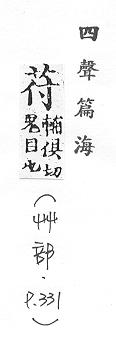 四聲篇海
苻輔俱切
鬼目也
(艸部.P.331)